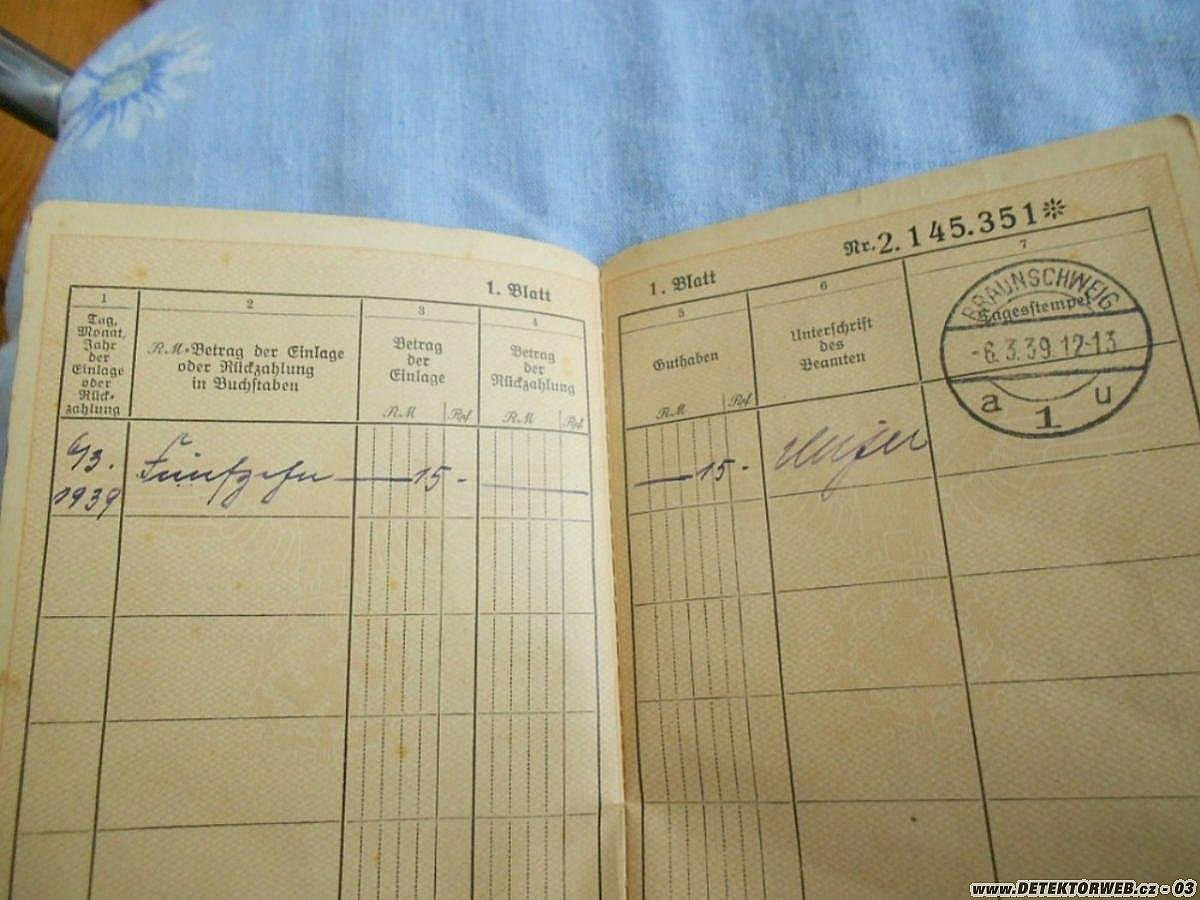 1. Blatt
1
Tag,
Monat,
Jahr
der
Einlage
oder
Rück-
zahlung
2
RM-Betrag der Einlage
oder Rückzahlung
in Buchstaben
3
Betrag
der
Einlage
RM Rpf
4
Betrag
der
Rückzahlung
RM Rpf
6/3.
1939
Fünfzehn — 15 -
1. Blatt
Nr. 2.145.351*
5
Guthaben
RM Rpf
6
Unterschrift
des
Beamten
7
Tagesstempel
BRAUNSCHWEIG
-6.3.39.12-13
a 1 u
— 15 -
www.DETEKTORWEB.cz - 03